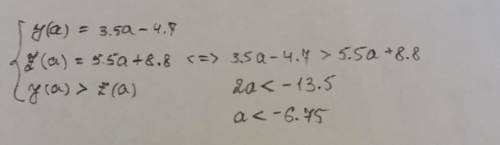 y(a) = 3.5a - 4.7
z(a) = 5.5a + 8.8 <=> 3.5a - 4.7 > 5.5a + 8.8
y(a) > z(a) 2a < -13.5
a < -6.75